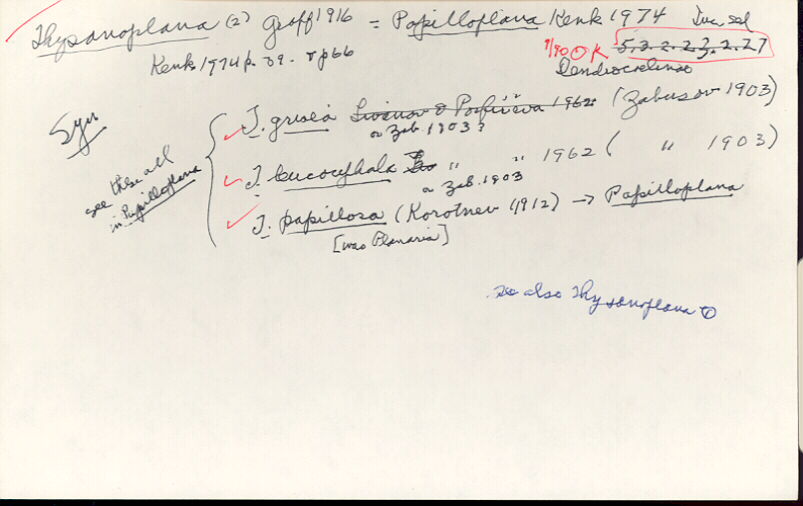 Thysanoplana (2) Graff 1916 = Papilloplana Kenk 1974
Kenk 1974 p. 39. & p66
9/90 OK 5.2.2.23.2.27
Dendrocoelinae
Syn
see these all
in Papilloplana
T. grisea Livanov & Porfiŕeva 1962. (Zabusov 1903)
or Zab. 1903?
T. leucocephala " " 1962 ( " 1903)
or Zab. 1903
T. papillosa (Korotnev 1912) → Papilloplana
[was Planaria]
see also Thysanoplana ①